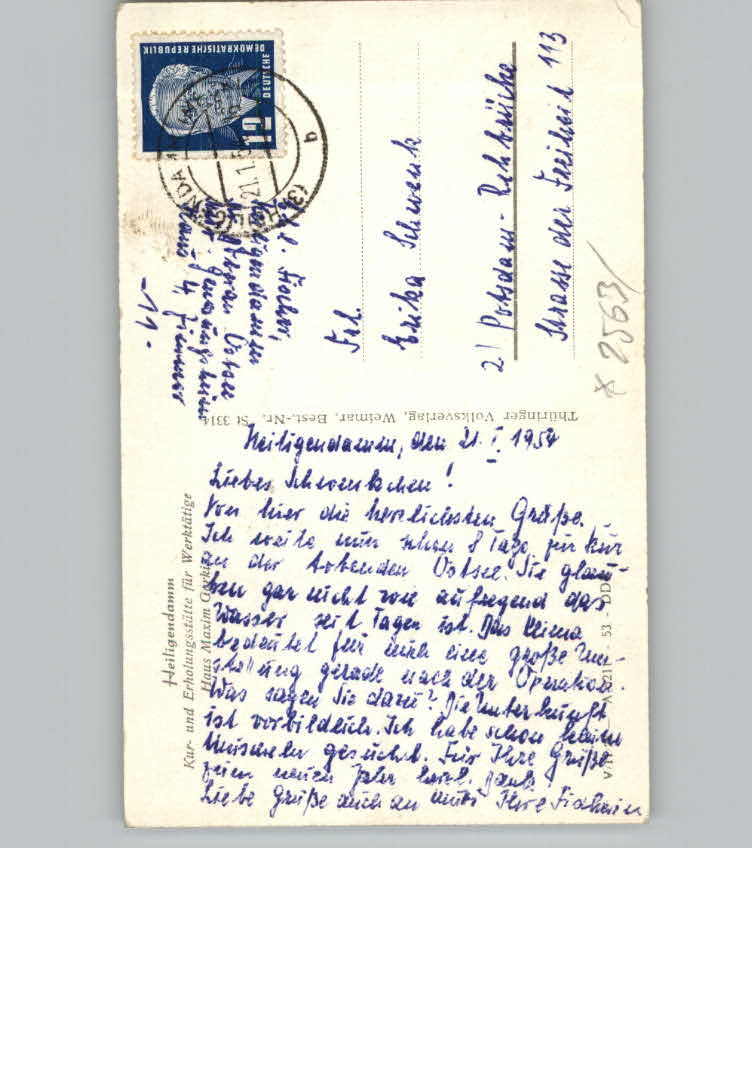 Heiligendamm
Kur- und Erholungsstätte für Werktätige
Haus Maxim Gorki
Heiligendamm, den 21. I. 1954
Liebes Schwenkchen!
Von hier die herzlichsten Grüße.
Ich weile nun schon 8 Tage zur Kur
an der tobenden Ostsee. Sie glau-
ben gar nicht wie aufregend das
Wasser seit Tagen ist. Das Klima
bedeutet für mich eine große Um-
stellung gerade nach der Operation.
Was sagen Sie dazu? Die Unterkunft
ist vorbildlich. Ich habe schon
Muscheln gesucht. Für Ihre Grüße
zum neuen Jahr herzl. Dank!
Liebe Grüße auch an Mutti Ihre
Thüringer Volksverlag, Weimar, Best.-Nr. St 3314
53 - DDR
Fischer,
Heiligendamm
Ostsee
Genesungsheim
Haus 4, Zimmer
-11-
DEUTSCHE
DEMOKRATISCHE REPUBLIK
12
(3) HEILIGENDAMM
21.1.54
b
Frl.
Erika Schwenk
2) Potsdam-Rehbrücke
Strasse der Freiheit 113
x 2563/